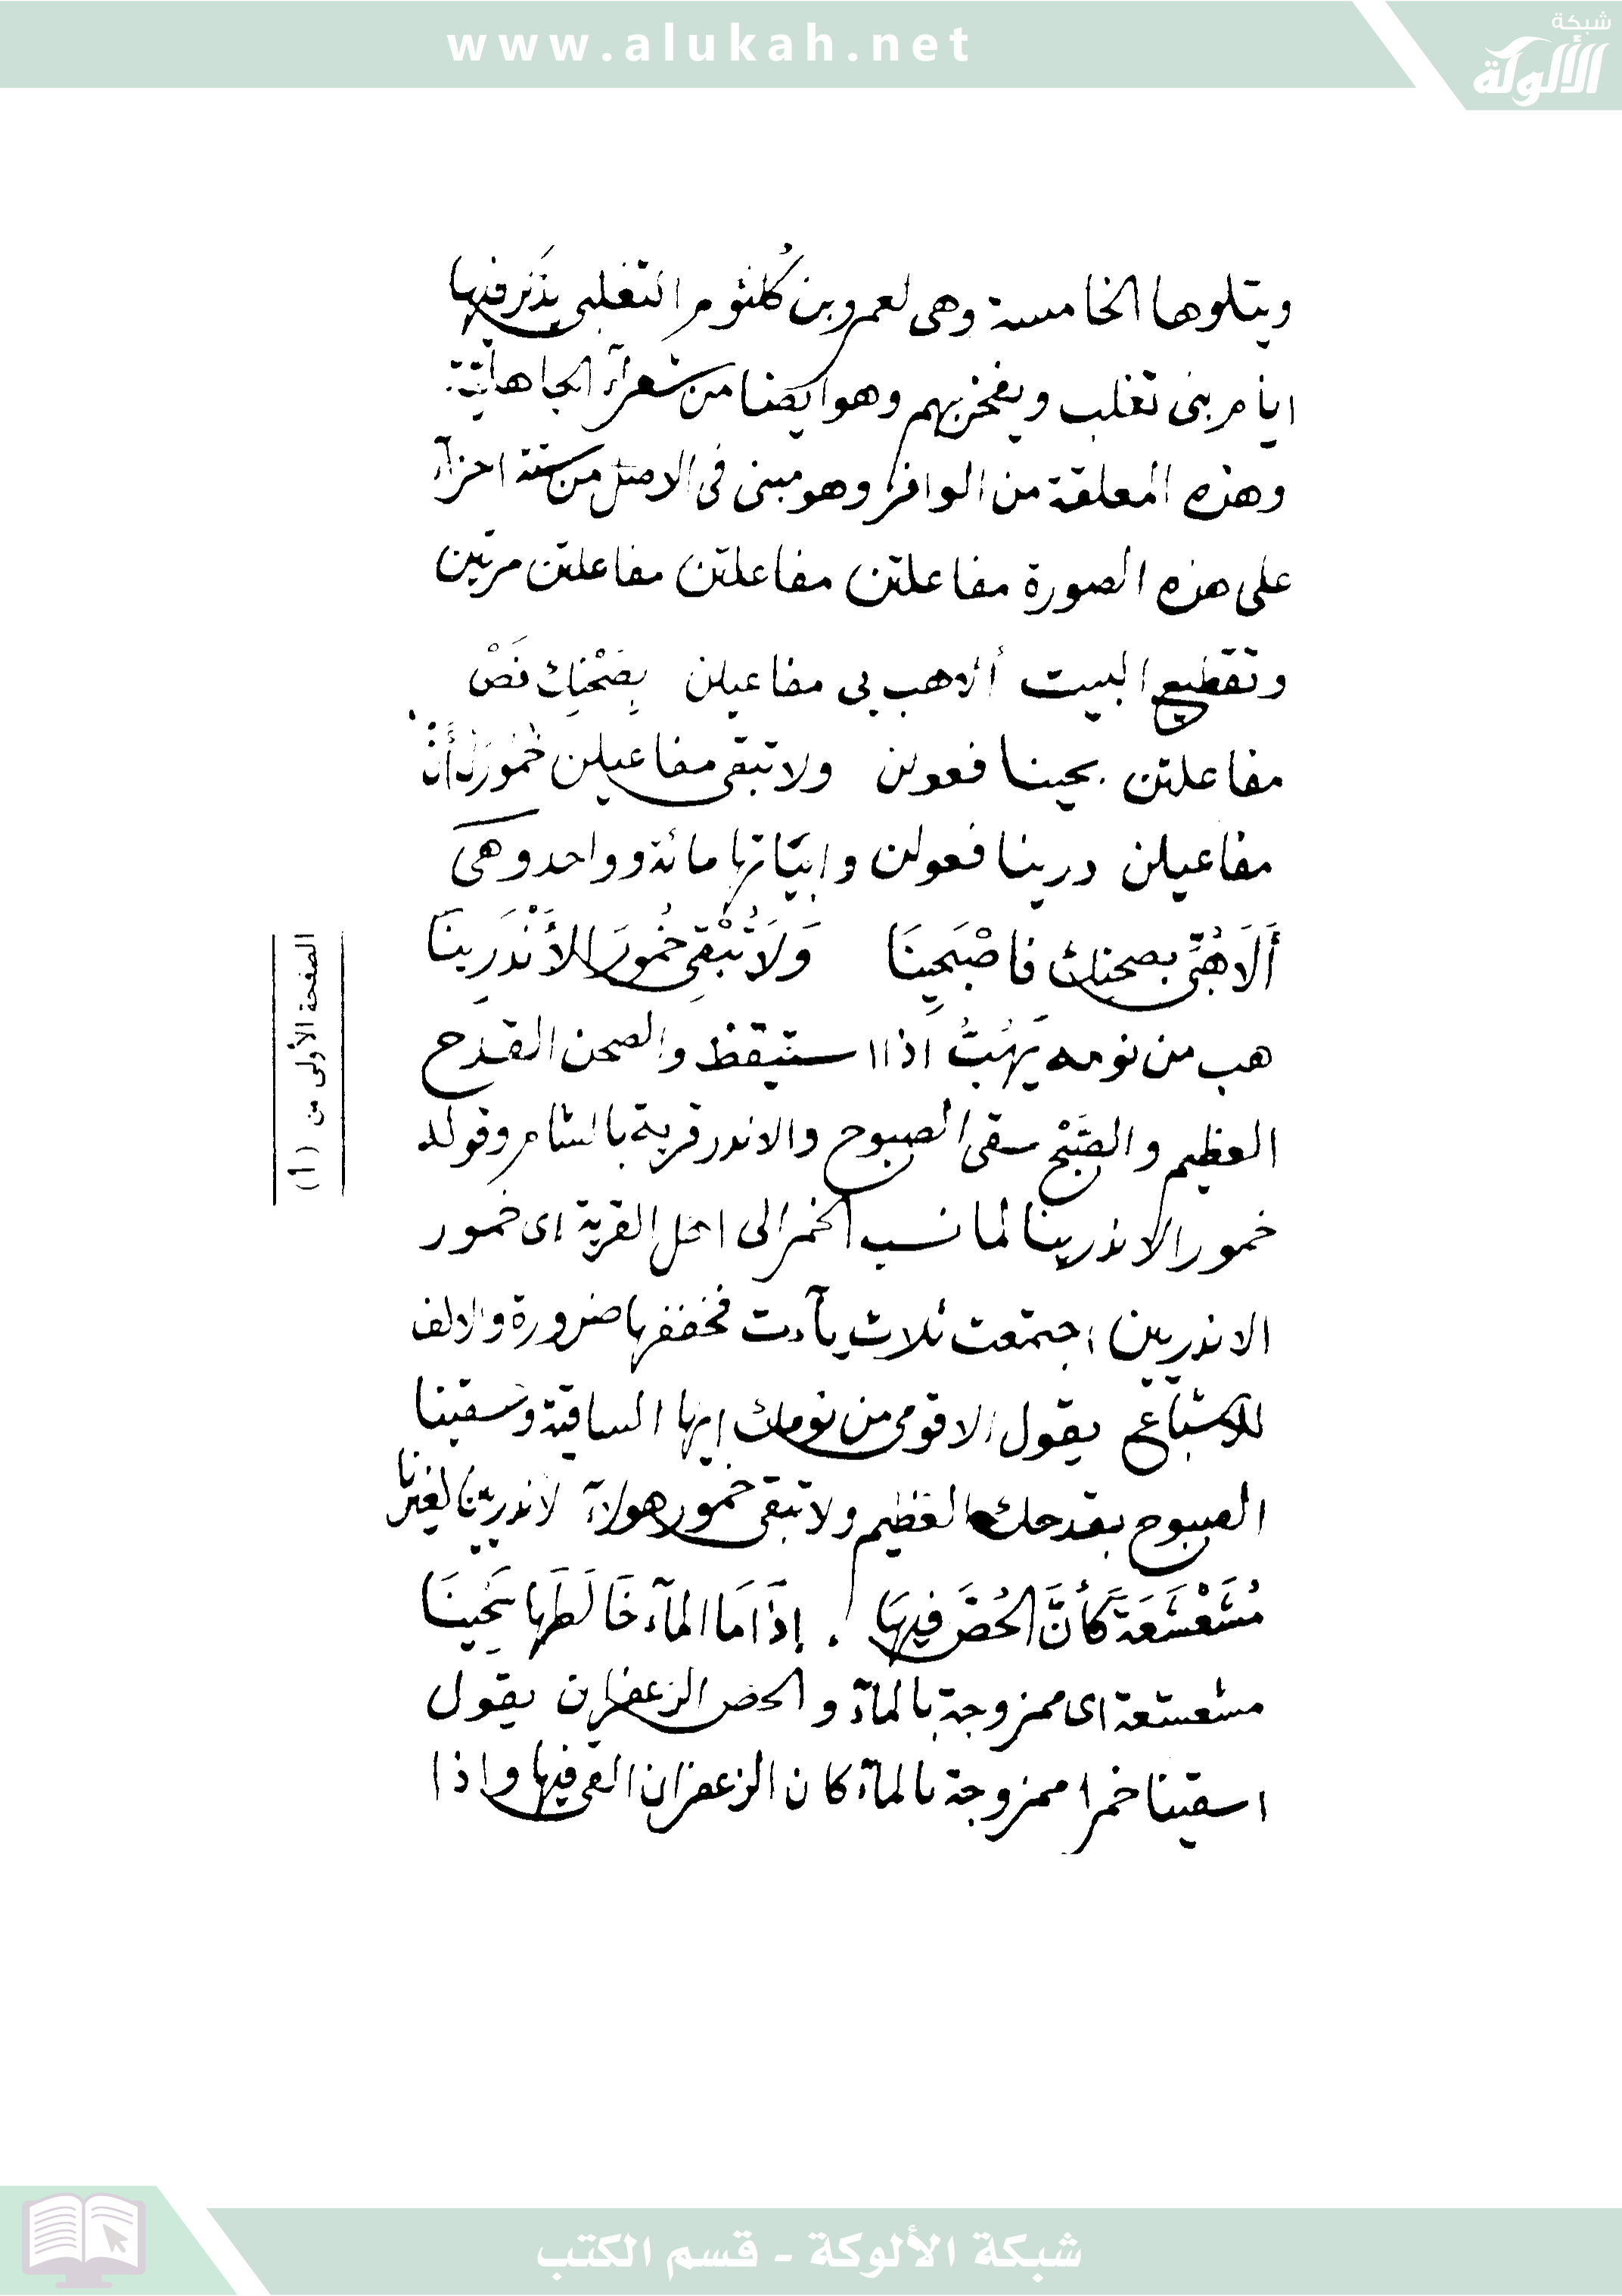 www.alukah.net
شبكة
الألوكة
ويتلوها الخامسة وهى لعمرو بن كُلثوم التغلبى يذكر فيها
ايام بنى تغلب ويفخر بهم وهو ايضا من شعرآء الجاهليّة
وهذه المعلقة من الوافر وهو مبنى فى الاصل من ستة اجزآء
على هذه الصورة مفاعلتن مفاعلتن مفاعلتن مرتين
وتقطيع البيت ألاهب بى مفاعيلن بِصَحْنِك فَصْ
مفاعلتن بحينا فعولن ولا تبقى مفاعيلن خُمُورَلْ أَنْ
مفاعيلن درينا فعولن وابياتها مائة وواحد وهى
أَلَا هُبِّى بصحنك فاصْبَحِينَا وَلَا تُبْقِى خُمُورَ الأَنْدَرِينَا
هب من نومه يَهُبُّ اذا استيقظ والصحن القدح
العظيم والصَّبْح سقى الصبوح والاندر قرية بالشام وقوله
خمور الاندرينا لما نسب الخمر الى اهل القرية اى خمور
الاندريين اجتمعت ثلاث يآءت فخففها ضرورة والالف
للاشباع يقول الا قومى من نومك ايها الساقية وسقينا
الصبوح بقدحك العظيم ولا تبقى خمور هولآء لاندريّنا لغيرنا
مُشَعْشَعَةً كَأَنَّ الحُصَّ فِيهَا إِذَا مَا المآء خَالَطَهَا سَخِينَا
مشعشعة اى ممزوجة بالمآء والحص الزعفران يقول
اسقينا خمرا ممزوجة بالمآء كان الزعفران القى فيها واذا
الصفحة الأولى من (أ)
شبكة الألوكة - قسم الكتب